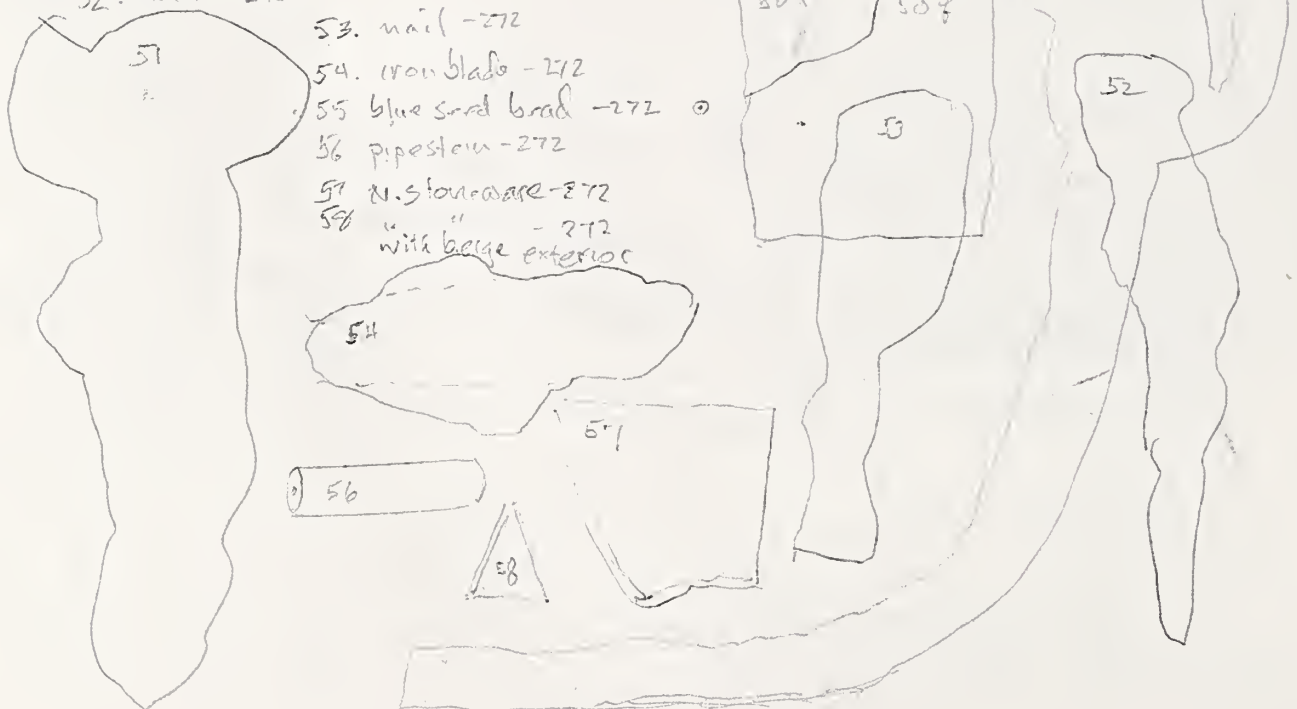 52.
53. nail -272
54. iron blade -272
55 blue seed bead -272
56 pipestem -272
57 N. stoneware -272
58 " " -272
with beige exterior
51
52
53
54
57
56
58